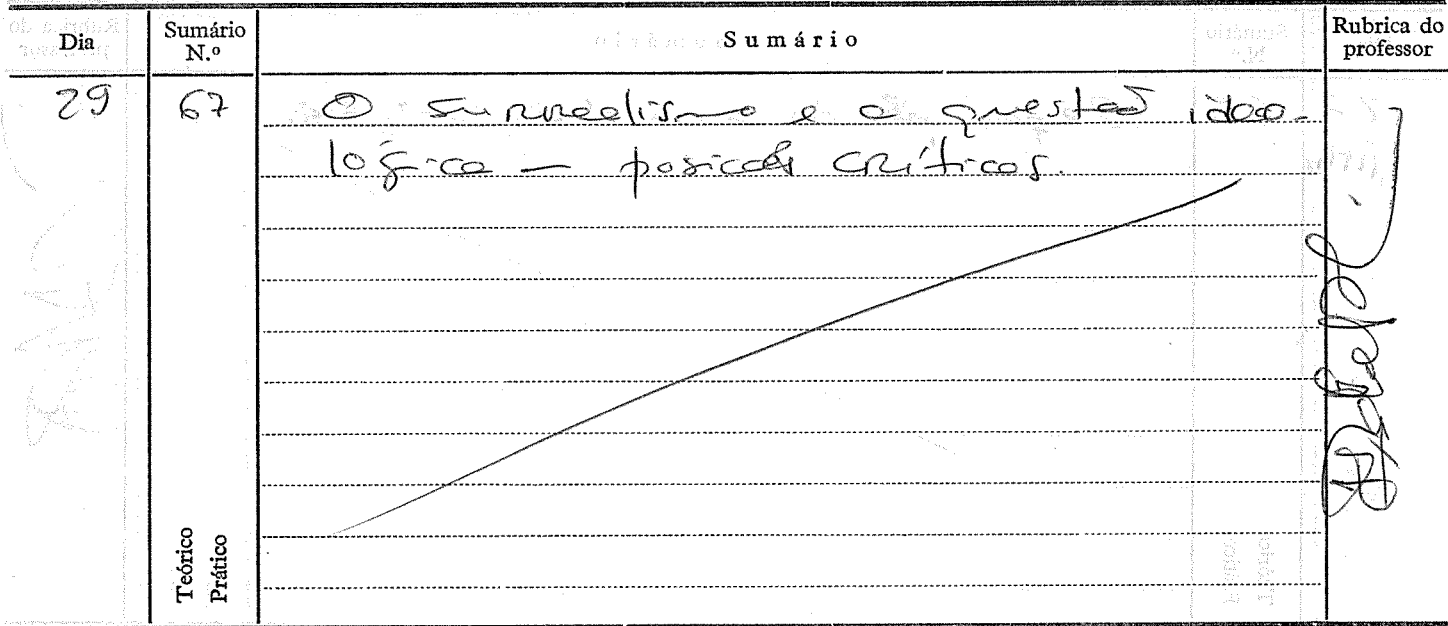 Dia
Sumário N.º
Sumário
Rubrica do professor
29 67 O surrealismo e a questão ideo-
lógica — posições críticas.
Teórico
Prático